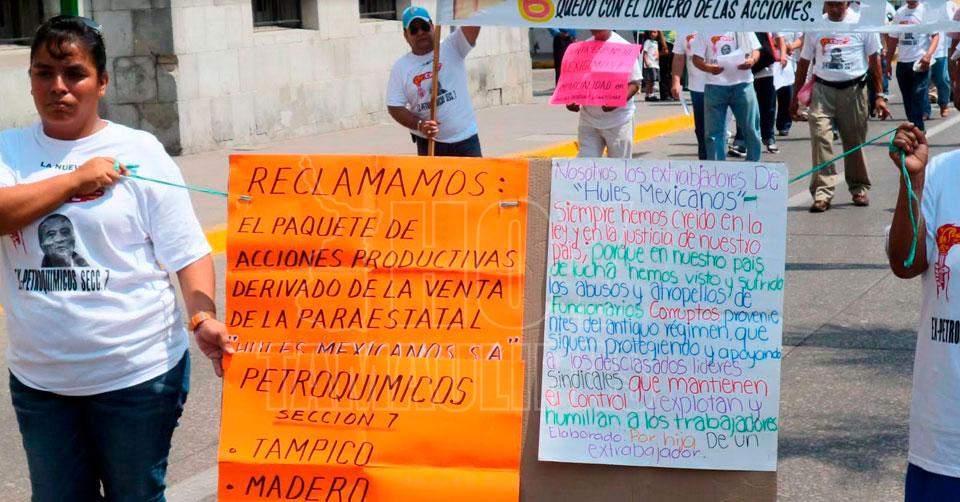 QUEDO CON EL DINERO DE LAS ACCIONES.
RECLAMAMOS:
EL PAQUETE DE
ACCIONES PRODUCTIVAS
DERIVADO DE LA VENTA
DE LA PARAESTATAL
"HULES MEXICANOS S.A"
PETROQUIMICOS
SECCION 7
• TAMPICO
• MADERO
Nosotros los extrabajadores De
"Hules Mexicanos"-
Siempre hemos creido en la
ley y en la justicia de nuestro
país, porque en nuestro país
de lucha hemos visto y sufrido
los abusos y atropellos, de
funcionarios Corruptos provenie
ntes del antiguo régimen, que
siguen protegiendo y apoyando
a los desclasados lideres
Sindicales que mantienen
el control y explotan y
humillan a los trabajadores
Elaborado: Por hija De un
extrabajador.
LA NUEV
EX-PETROQUIMICOS SECC. 7
SECC. 7
EX-PETROQUI
HOY
TAMAULIPAS